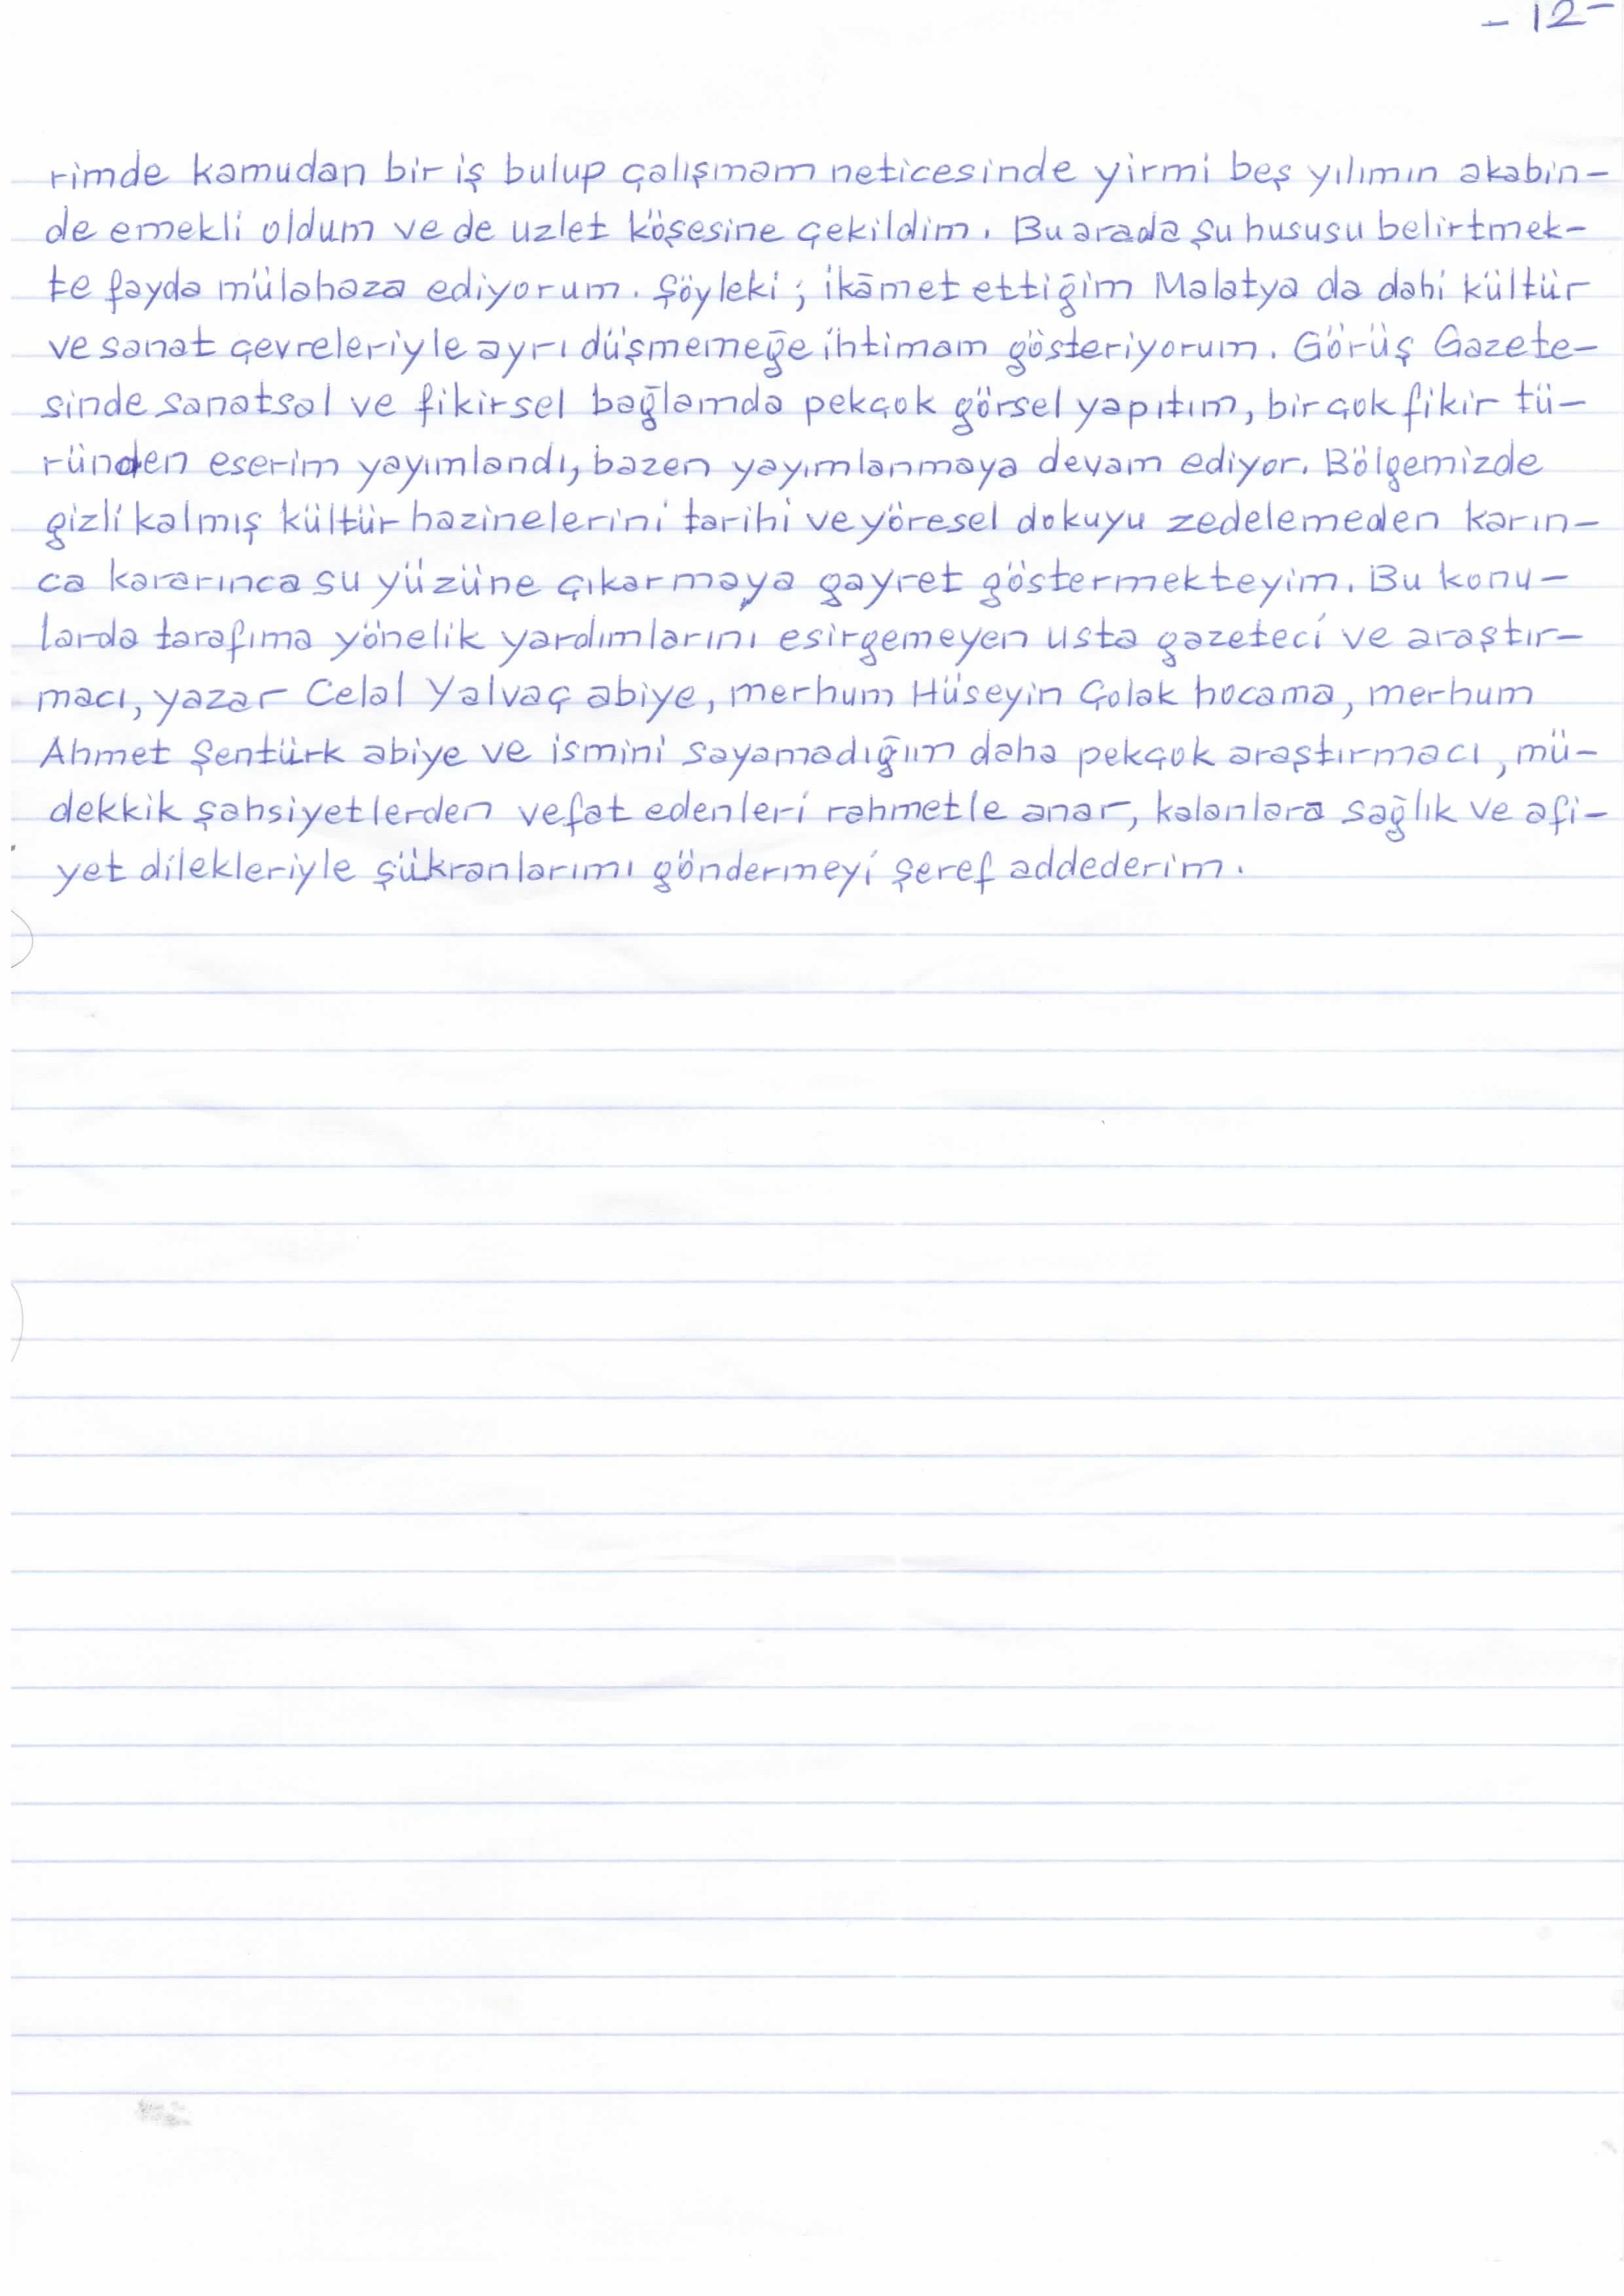 - 12 -
rimde kamudan bir iş bulup çalışmam neticesinde yirmi beş yılımın akabin-
de emekli oldum ve de uzlet köşesine çekildim. Bu arada şu hususu belirtmek-
te fayda mülahaza ediyorum. Şöyleki; ikāmet ettiğim Malatya da dahi kültür
ve sanat çevreleriyle ayrı düşmemeğe ihtimam gösteriyorum. Görüş Gazete-
sinde sanatsal ve fikirsel bağlamda pekçok görsel yapıtım, birçok fikir tü-
ründen eserim yayımlandı, bazen yayımlanmaya devam ediyor. Bölgemizde
gizli kalmış kültür hazinelerini tarihi ve yöresel dokuyu zedelemeden karın-
ca kararınca su yüzüne çıkarmaya gayret göstermekteyim. Bu konu-
larda tarafıma yönelik yardımlarını esirgemeyen usta gazeteci ve araştır-
macı, yazar Celal Yalvaç abiye, merhum Hüseyin Çolak hocama, merhum
Ahmet Şentürk abiye ve ismini sayamadığım daha pekçok araştırmacı, mü-
dekkik şahsiyetlerden vefat edenleri rahmetle anar, kalanlara sağlık ve afi-
yet dilekleriyle şükranlarımı göndermeyi şeref addederim.